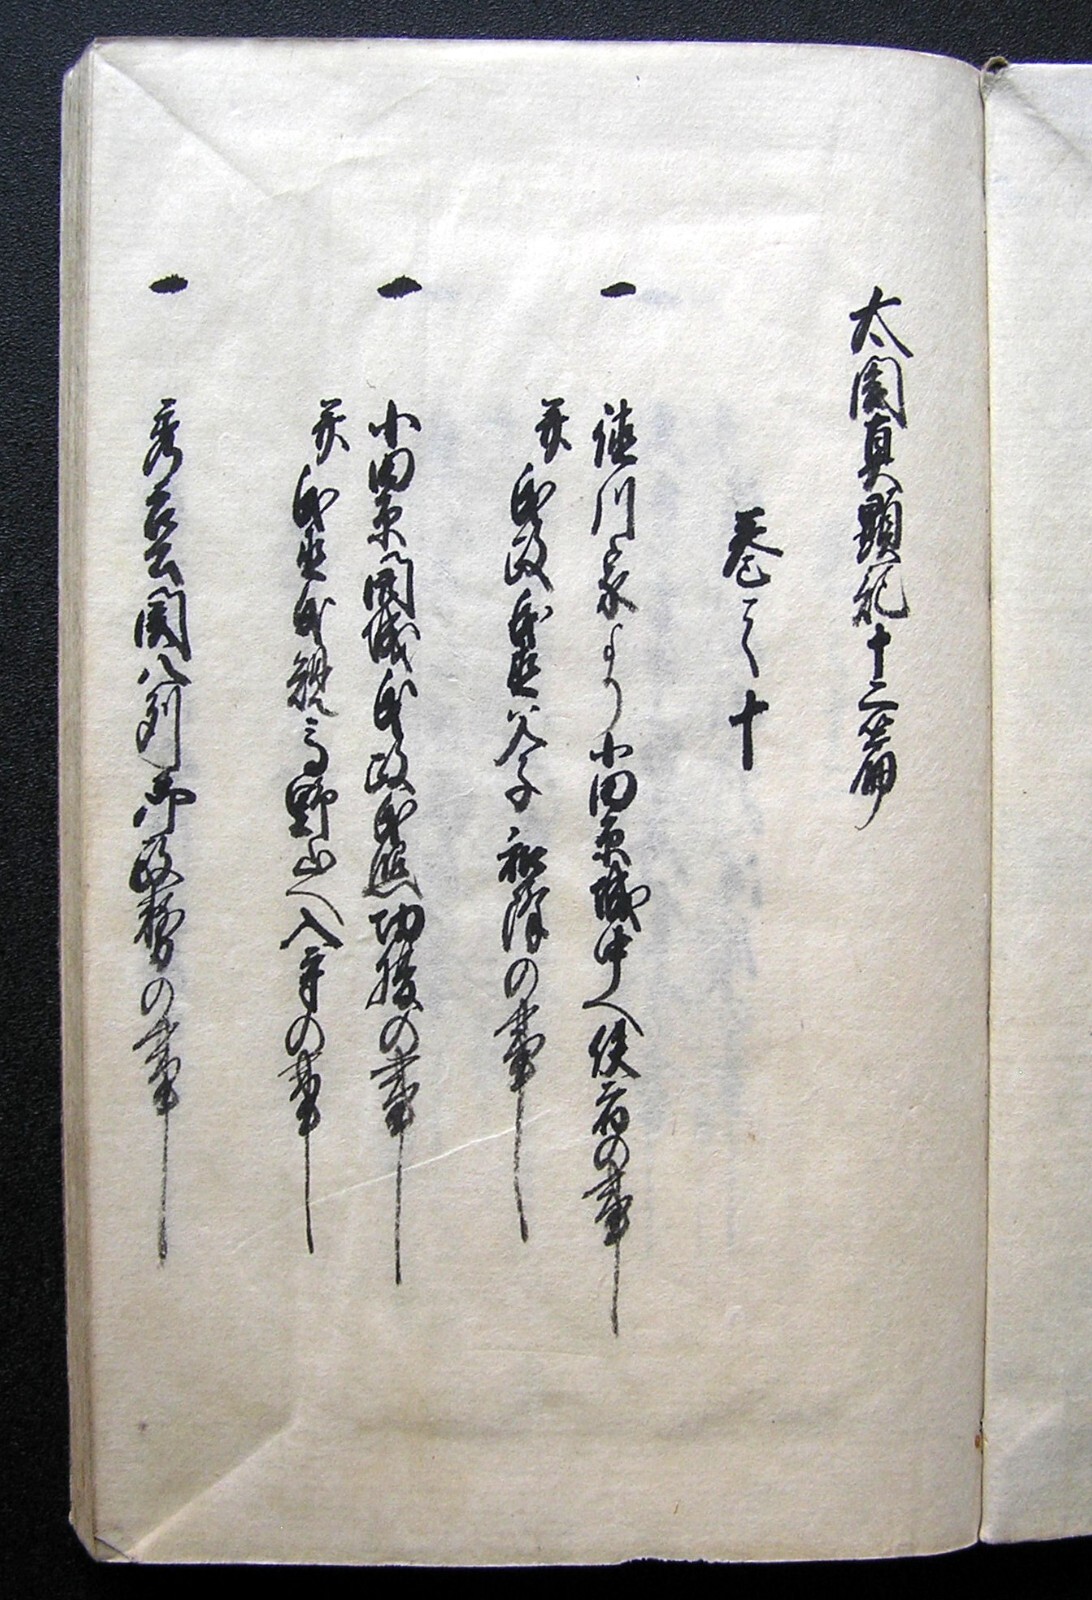 太閤真顕記十二篇
巻之十
一 徳川家より小田原城中へ使者の事
并氏政氏直父子和降の事
一 小田原開城氏政氏照切腹の事
并氏直氏規高野山へ入寺の事
一 秀吉公関八列御政務の事